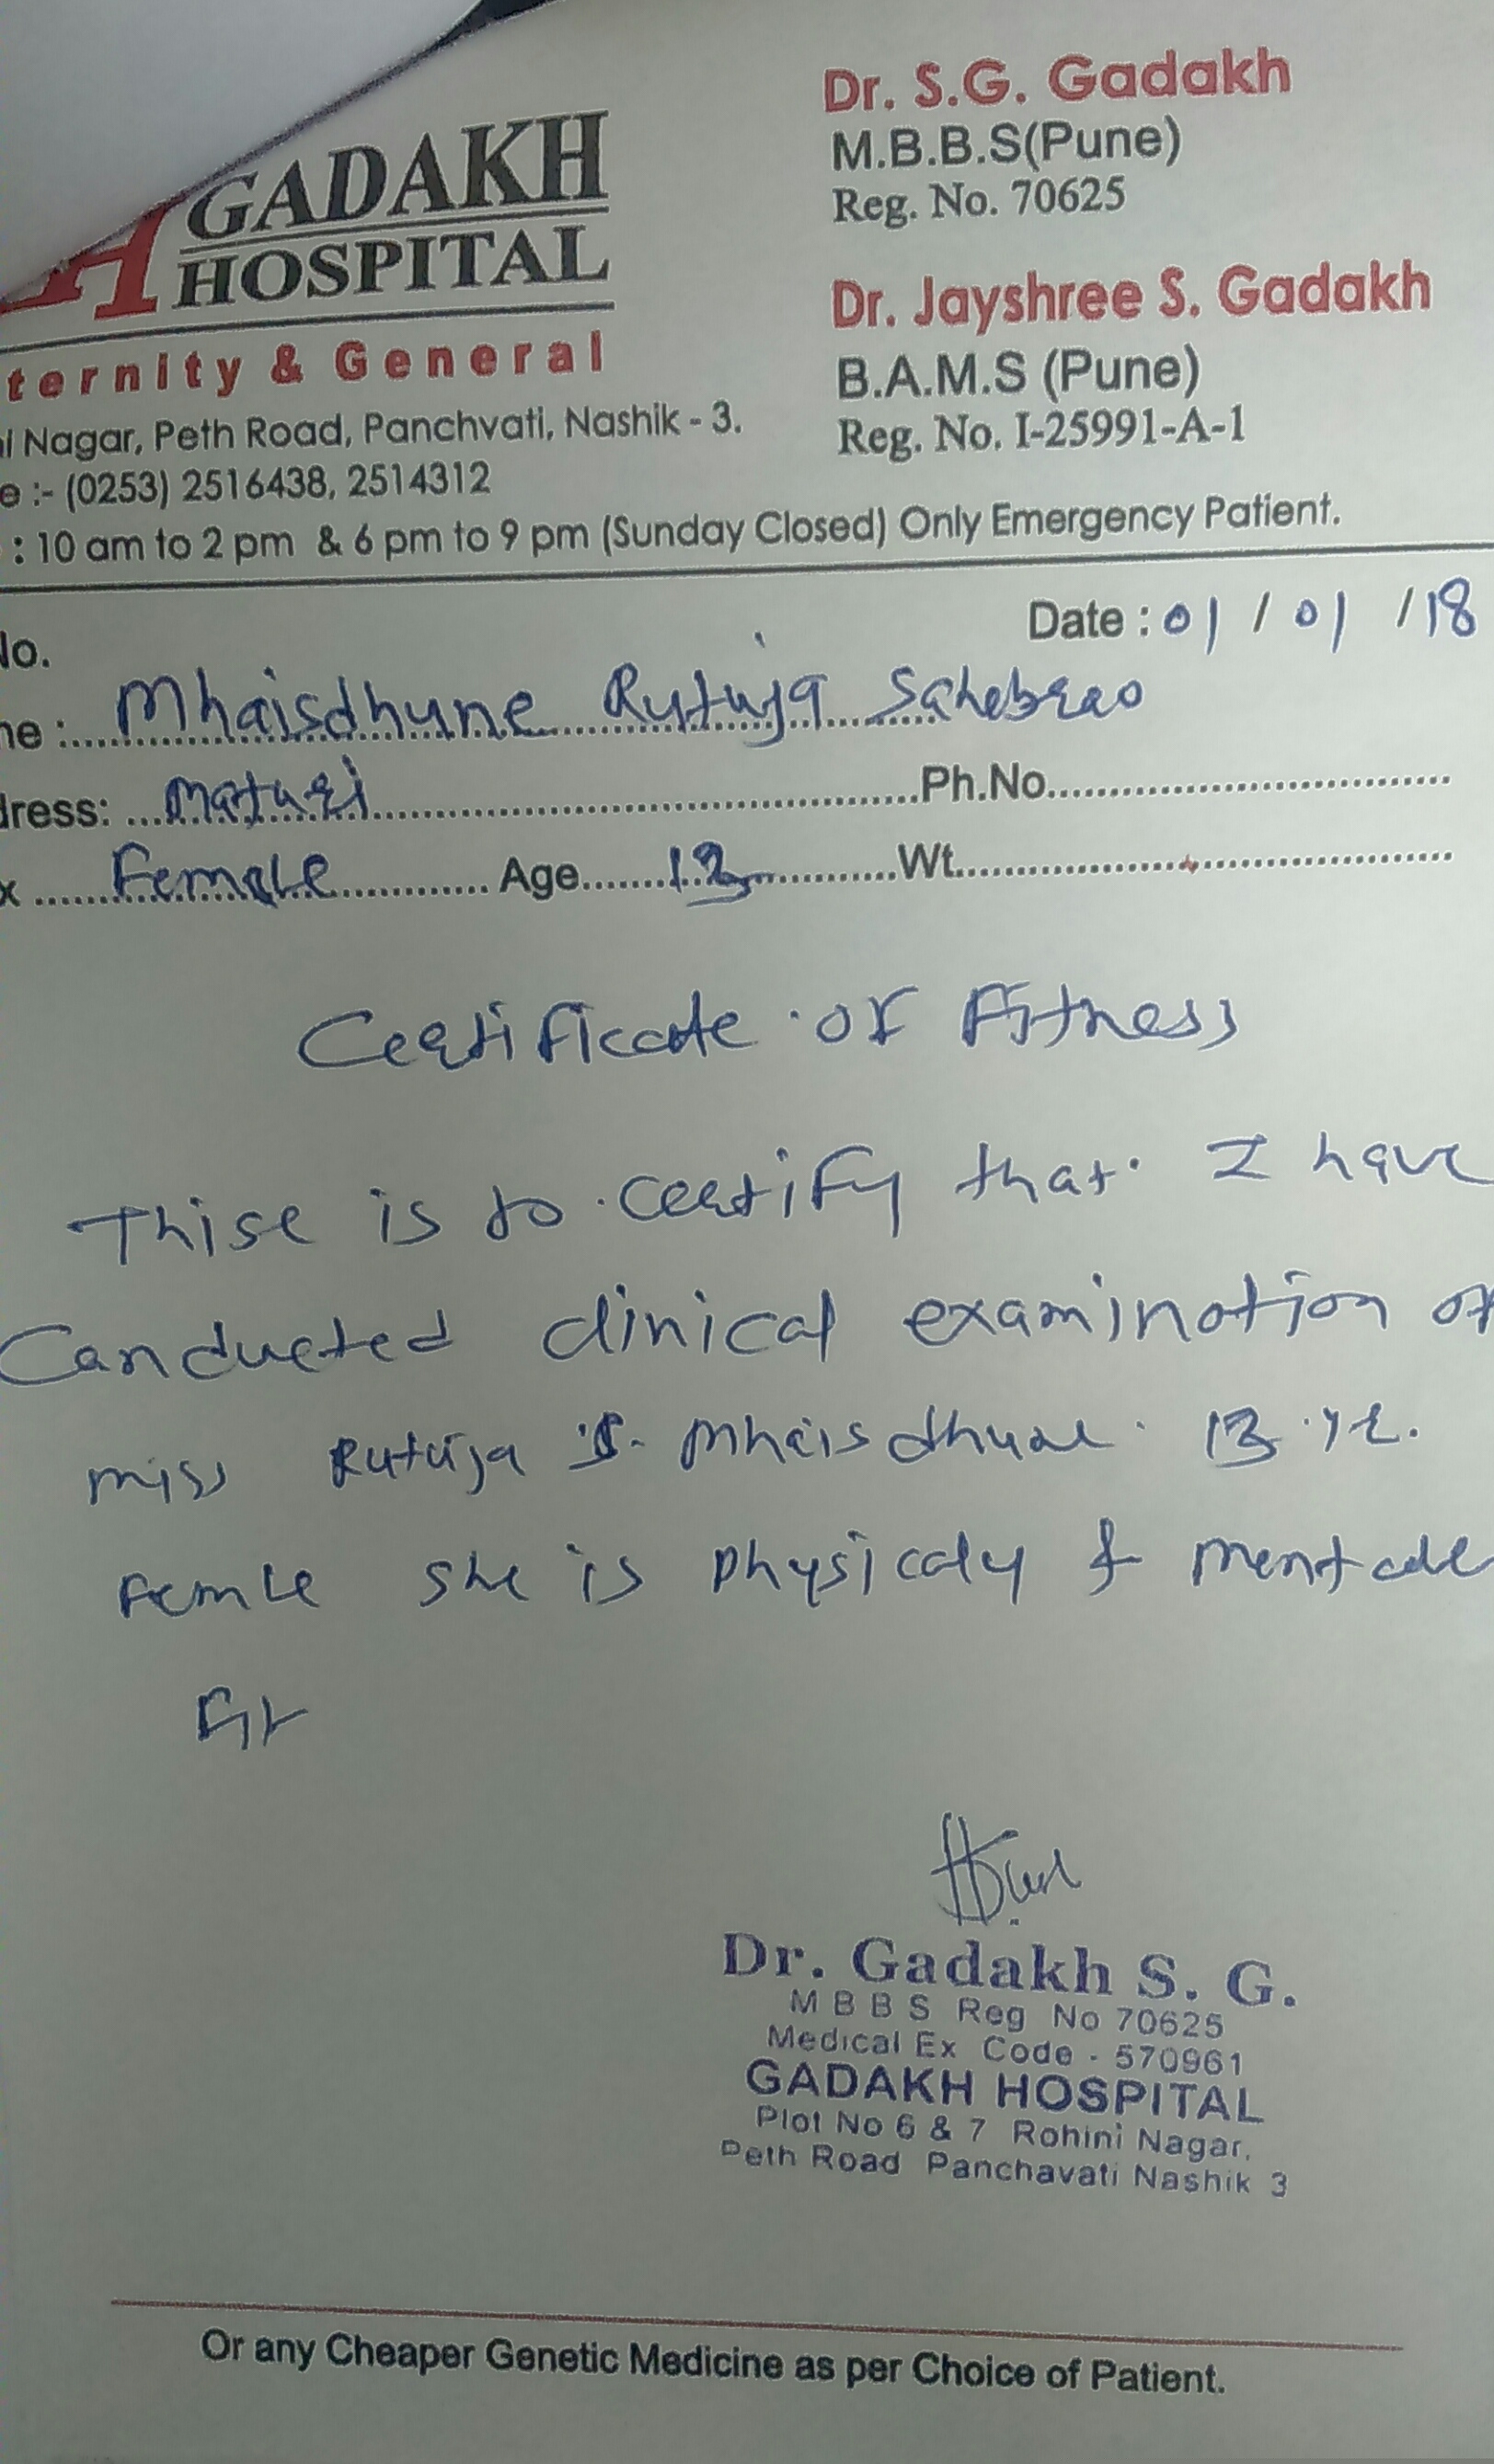 GADAKH
HOSPITAL
ternity & General
Nagar, Peth Road, Panchvati, Nashik - 3.
e :- (0253) 2516438, 2514312
: 10 am to 2 pm & 6 pm to 9 pm (Sunday Closed) Only Emergency Patient.
Dr. S.G. Gadakh
M.B.B.S(Pune)
Reg. No. 70625
Dr. Jayshree S. Gadakh
B.A.M.S (Pune)
Reg. No. I-25991-A-1
No.
Date : 01 / 01 / 18
me : Mhaisdhune Rutuja Sahebrao
dress: Ph.No.
x Female Age 13 Wt.
Certificate of Fitness
Thise is to certify that I have
Conducted clinical examination of
miss Rutuja S. Mhaisdhune 13 yr.
Femle she is physicaly & mentale
Fit
Dr. Gadakh S. G.
M B B S Reg No 70625
Medical Ex Code - 570961
GADAKH HOSPITAL
Plot No 6 & 7 Rohini Nagar,
Peth Road Panchavati Nashik 3
Or any Cheaper Genetic Medicine as per Choice of Patient.